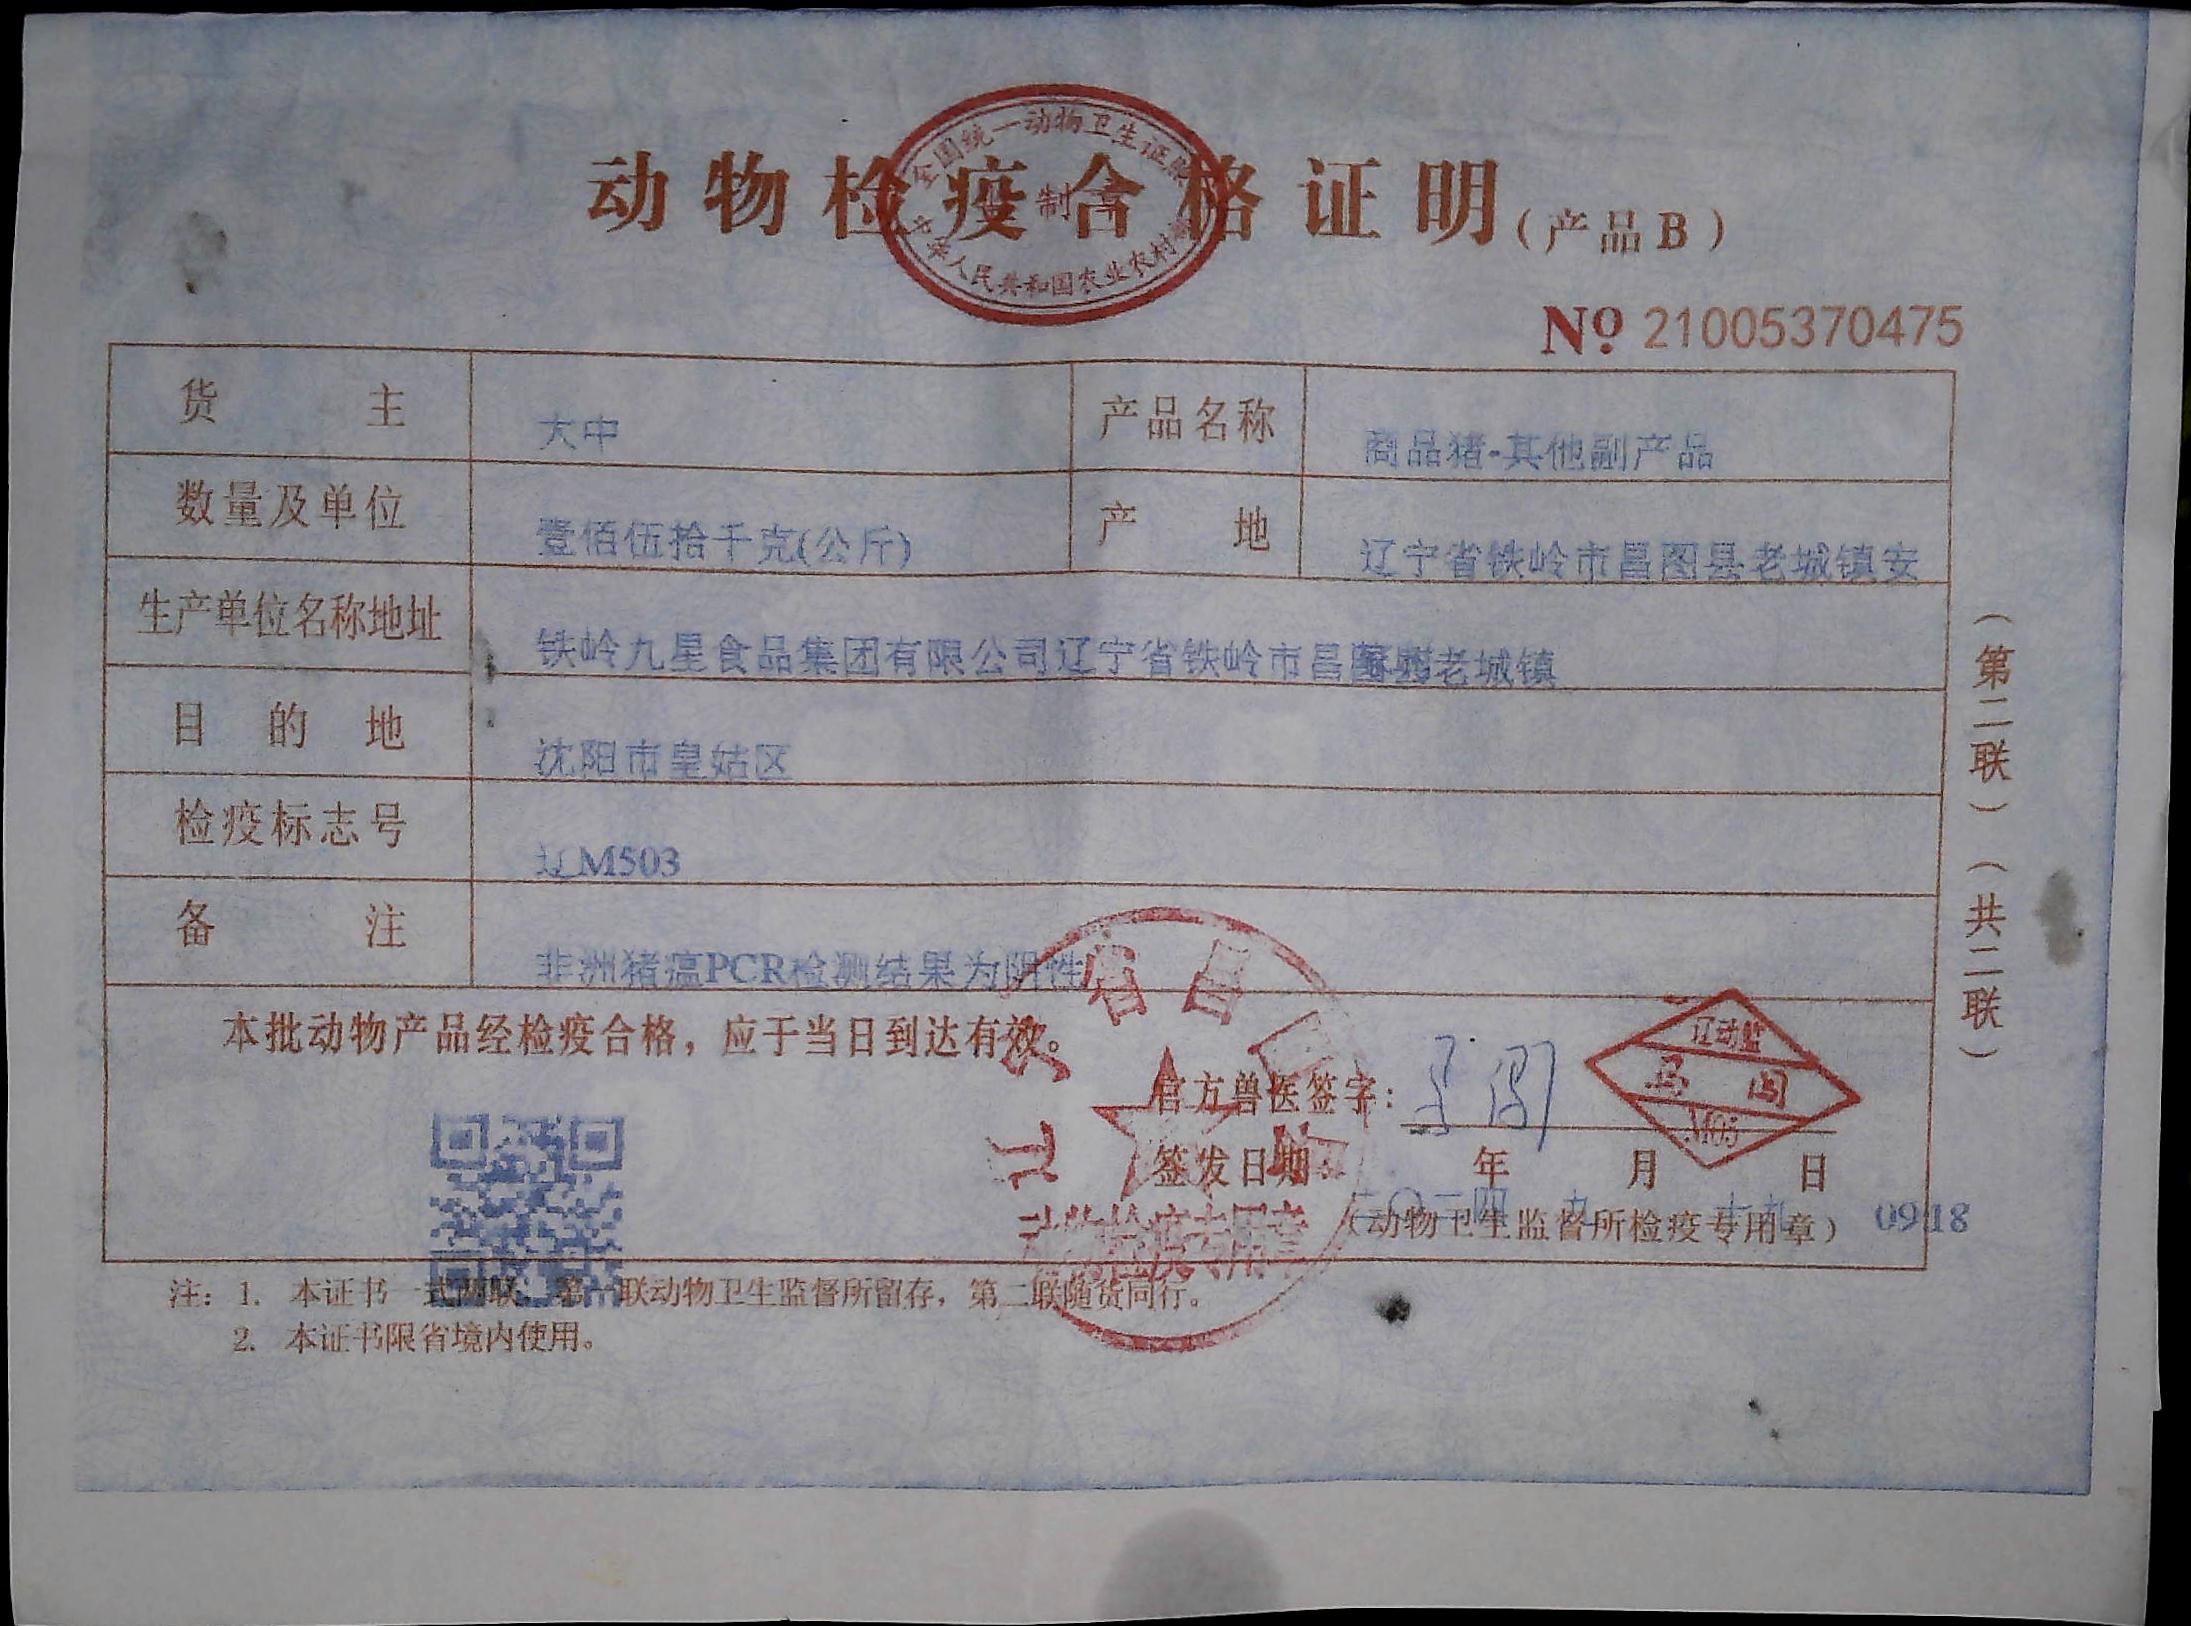 全国统一动物卫生证
制 章
中华人民共和国农业农村部
动物检疫合格证明(产品B)
№ 21005370475
货 主 大中 产品名称 商品猪-其他副产品
数量及单位 壹佰伍拾千克(公斤) 产 地 辽宁省铁岭市昌图县老城镇安
生产单位名称地址 铁岭九星食品集团有限公司辽宁省铁岭市昌图县老城镇
目 的 地 沈阳市皇姑区
检疫标志号 辽M503
备 注 非洲猪瘟PCR检测结果为阴性
本批动物产品经检疫合格，应于当日到达有效。
官方兽医签字：马阅
辽动监
马 阅
M05
签发日期： 年 月 日
二〇二四 九 十九 0918
(动物卫生监督所检疫专用章)
辽宁省昌图
动物检疫专用章
注：1. 本证书一式两联，第一联动物卫生监督所留存，第二联随货同行。
2. 本证书限省境内使用。
(第二联)(共二联)